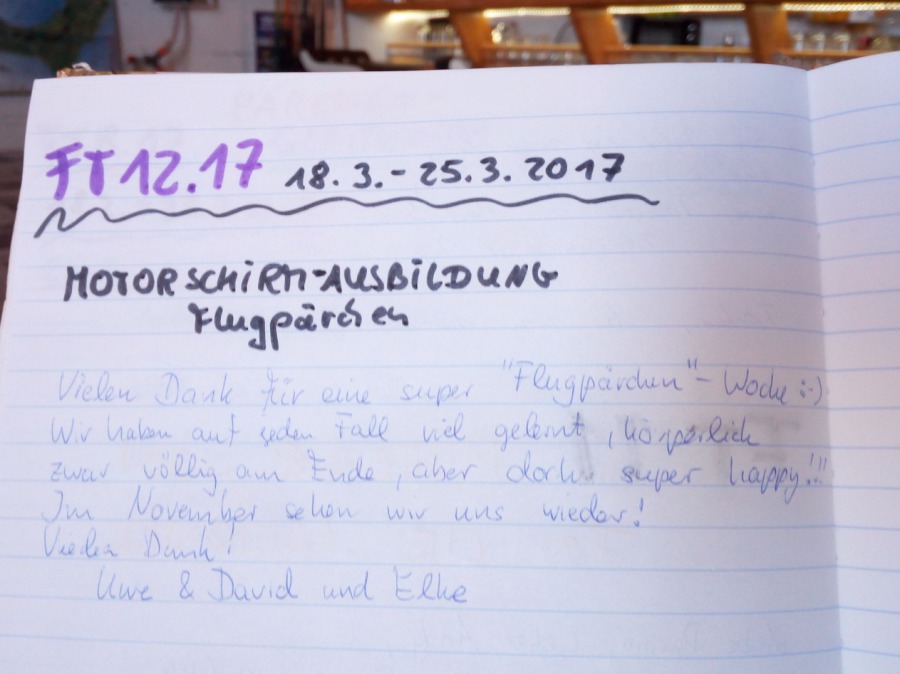 FT 12.17 18.3.-25.3.2017
MOTORSCHiRM-AUSBiLDUNG
Flugpärchen
Vielen Dank für eine super "Flugpärchen"- Woche :-)
Wir haben auf jeden Fall viel gelernt, körperlich
zwar völlig am Ende, aber super happy!!!
Im November sehen wir uns wieder!
Vielen Dank!
Uwe & David und Elke